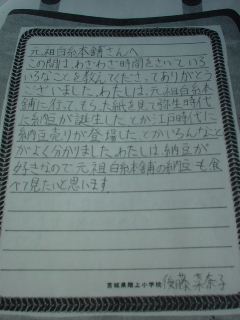 元祖白糸本舗さんへ
この間は、わざわざ時間をさいて、いろ
いろなことを教えてくださってありがとう
ございました。わたしは、元祖白糸本
舗に行ってもらった紙を見て弥生時代
に納豆が誕生したとか江戸時代に
納豆売りが登場したとかいろんなこと
がよく分かりました。わたしは、納豆が
好きなので元祖白糸本舗の納豆も食
べて見たいと思います。
宮城県階上小学校 後藤菜奈子